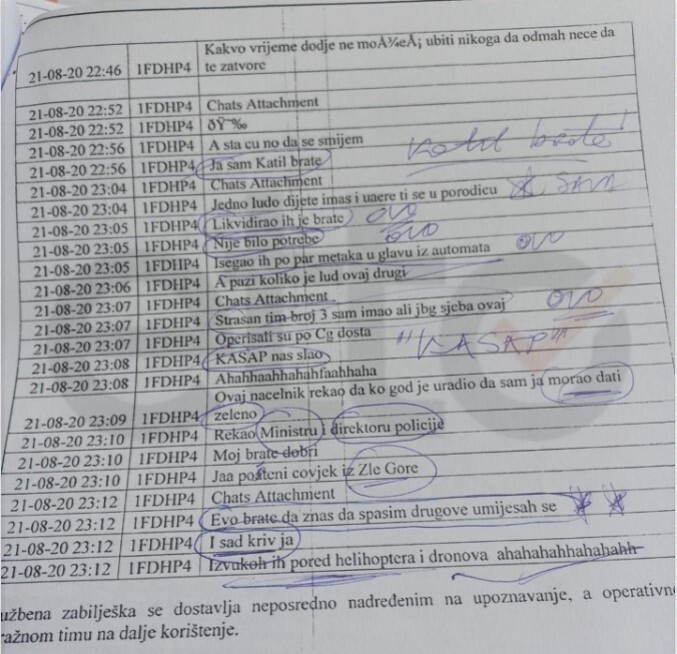 Kakvo vrijeme dodje ne moÅ¾eÅ¡ ubiti nikoga da odmah nece da
21-08-20 22:46 1FDHP4 te zatvore
21-08-20 22:52 1FDHP4 Chats Attachment
21-08-20 22:52 1FDHP4
21-08-20 22:56 1FDHP4 A sta cu no da se smijem
21-08-20 22:56 1FDHP4 Ja sam Katil brate Katil brate!
21-08-20 23:04 1FDHP4 Chats Attachment
21-08-20 23:04 1FDHP4 Jedno ludo dijete imas i uaere ti se u porodicu JA SAM
21-08-20 23:05 1FDHP4 Likvidirao ih je brate OVO
21-08-20 23:05 1FDHP4 Nije bilo potrebe OVO
21-08-20 23:05 1FDHP4 Isegao ih po par metaka u glavu iz automata OVO
21-08-20 23:06 1FDHP4 A pazi koliko je lud ovaj drugi
21-08-20 23:07 1FDHP4 Chats Attachment
21-08-20 23:07 1FDHP4 Strasan tim broj 3 sam imao ali jbg sjeba ovaj OVO
21-08-20 23:07 1FDHP4 Operisati su po Cg dosta
21-08-20 23:08 1FDHP4 KASAP nas slao "KASAP"
21-08-20 23:08 1FDHP4 Ahahhaahhahahfaahhaha
Ovaj nacelnik rekao da ko god je uradio da sam ja morao dati
21-08-20 23:09 1FDHP4 zeleno
21-08-20 23:10 1FDHP4 Rekao Ministru i direktoru policije
21-08-20 23:10 1FDHP4 Moj brate dobri
21-08-20 23:10 1FDHP4 Jaa posteni covjek iz Zle Gore
21-08-20 23:12 1FDHP4 Chats Attachment
21-08-20 23:12 1FDHP4 Evo brate da znas da spasim drugove umijesah se
21-08-20 23:12 1FDHP4 I sad kriv ja
21-08-20 23:12 1FDHP4 Izvukoh ih pored helihoptera i dronova ahahahahhahahahh
užbena zabilješka se dostavlja neposredno nadređenim na upoznavanje, a operativno
ražnom timu na dalje korištenje.